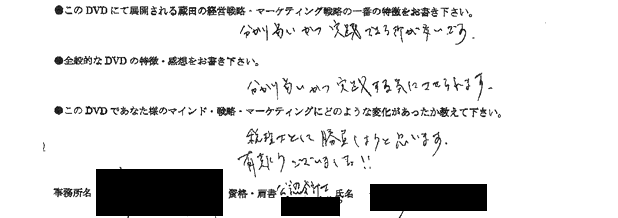 ●このDVDにて展開される蔵田の経営戦略・マーケティング戦略の一番の特徴をお書き下さい。
分かり易いかつ実践できる所が多いです。
●全般的なDVDの特徴・感想をお書き下さい。
分かり易いかつ実践する気にさせられます。
●このDVDであなた様のマインド・戦略・マーケティングにどのような変化があったか教えて下さい。
税理士として勝負しようと思います。
有難うございました!!
事務所名 資格・肩書 公認会計士 氏名